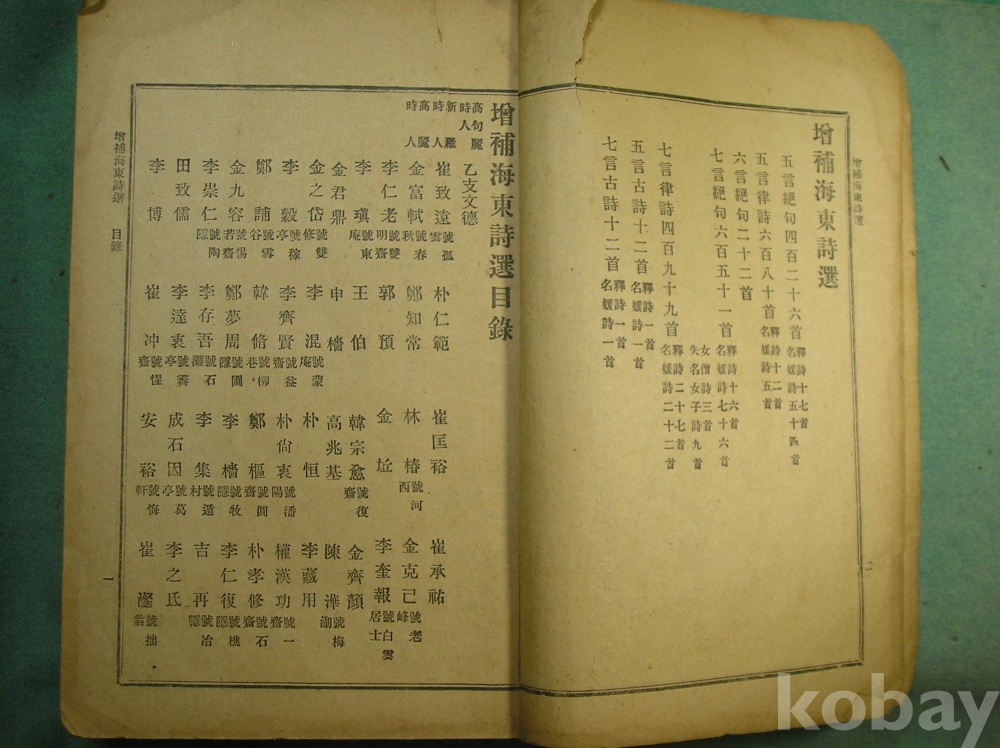 增補海東詩選
增補海東詩選
五言絕句四百二十六首 釋詩十七首 名媛詩五十四首
五言律詩六百八十首 釋詩十二首 名媛詩五首
六言絕句二十二首
七言絕句六百五十一首 釋詩十六首 名媛詩七十六首 女僧詩三首 失名女子詩九首
七言律詩四百九十九首 釋詩二十七首 名媛詩二十二首
五言古詩十二首 釋詩一首 名媛詩一首
七言古詩十二首 釋詩一首 名媛詩一首
二
增補海東詩選目錄
高句麗時人 乙支文德
新羅時人 崔致遠 號孤雲 朴仁範 崔匡裕 崔承祐
高麗時人 金富軾 號春秋 鄭知常 林椿 號河西 金克己 號老峰
李仁老 號雙明齋 郭預 金坵 李奎報 號白雲居士
李瑱 號東庵 王伯 韓宗愈 號復齋 金齊顏
金君鼎 申檣 高兆基 陳澕 號梅湖
金之岱 號雙修 李混 號蒙庵 朴恒 李藏用
李穀 號稼亭 李齊賢 號益齋 朴尙衷 號潘陽 權漢功 號一齋
鄭誧 號雪谷 韓脩 號柳巷 鄭樞 號圓齋 朴孝修 號石齋
金九容 號惕若齋 鄭夢周 號圃隱 李穡 號牧隱 李仁復 號樵隱
李崇仁 號陶隱 李存吾 號石灘 李集 號遁村 吉再 號冶隱
田致儒 李達衷 號霽亭 成石因 號葛亭 李之氐
李博 崔冲 號惺齋 安裕 號悔軒 崔瀣 號拙翁
增補海東詩選 目錄
一
kobay